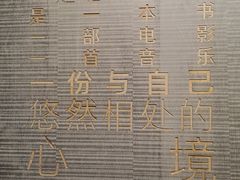 是一本书
一部电影
一首音乐
一份与自己
悠然相处的
心境